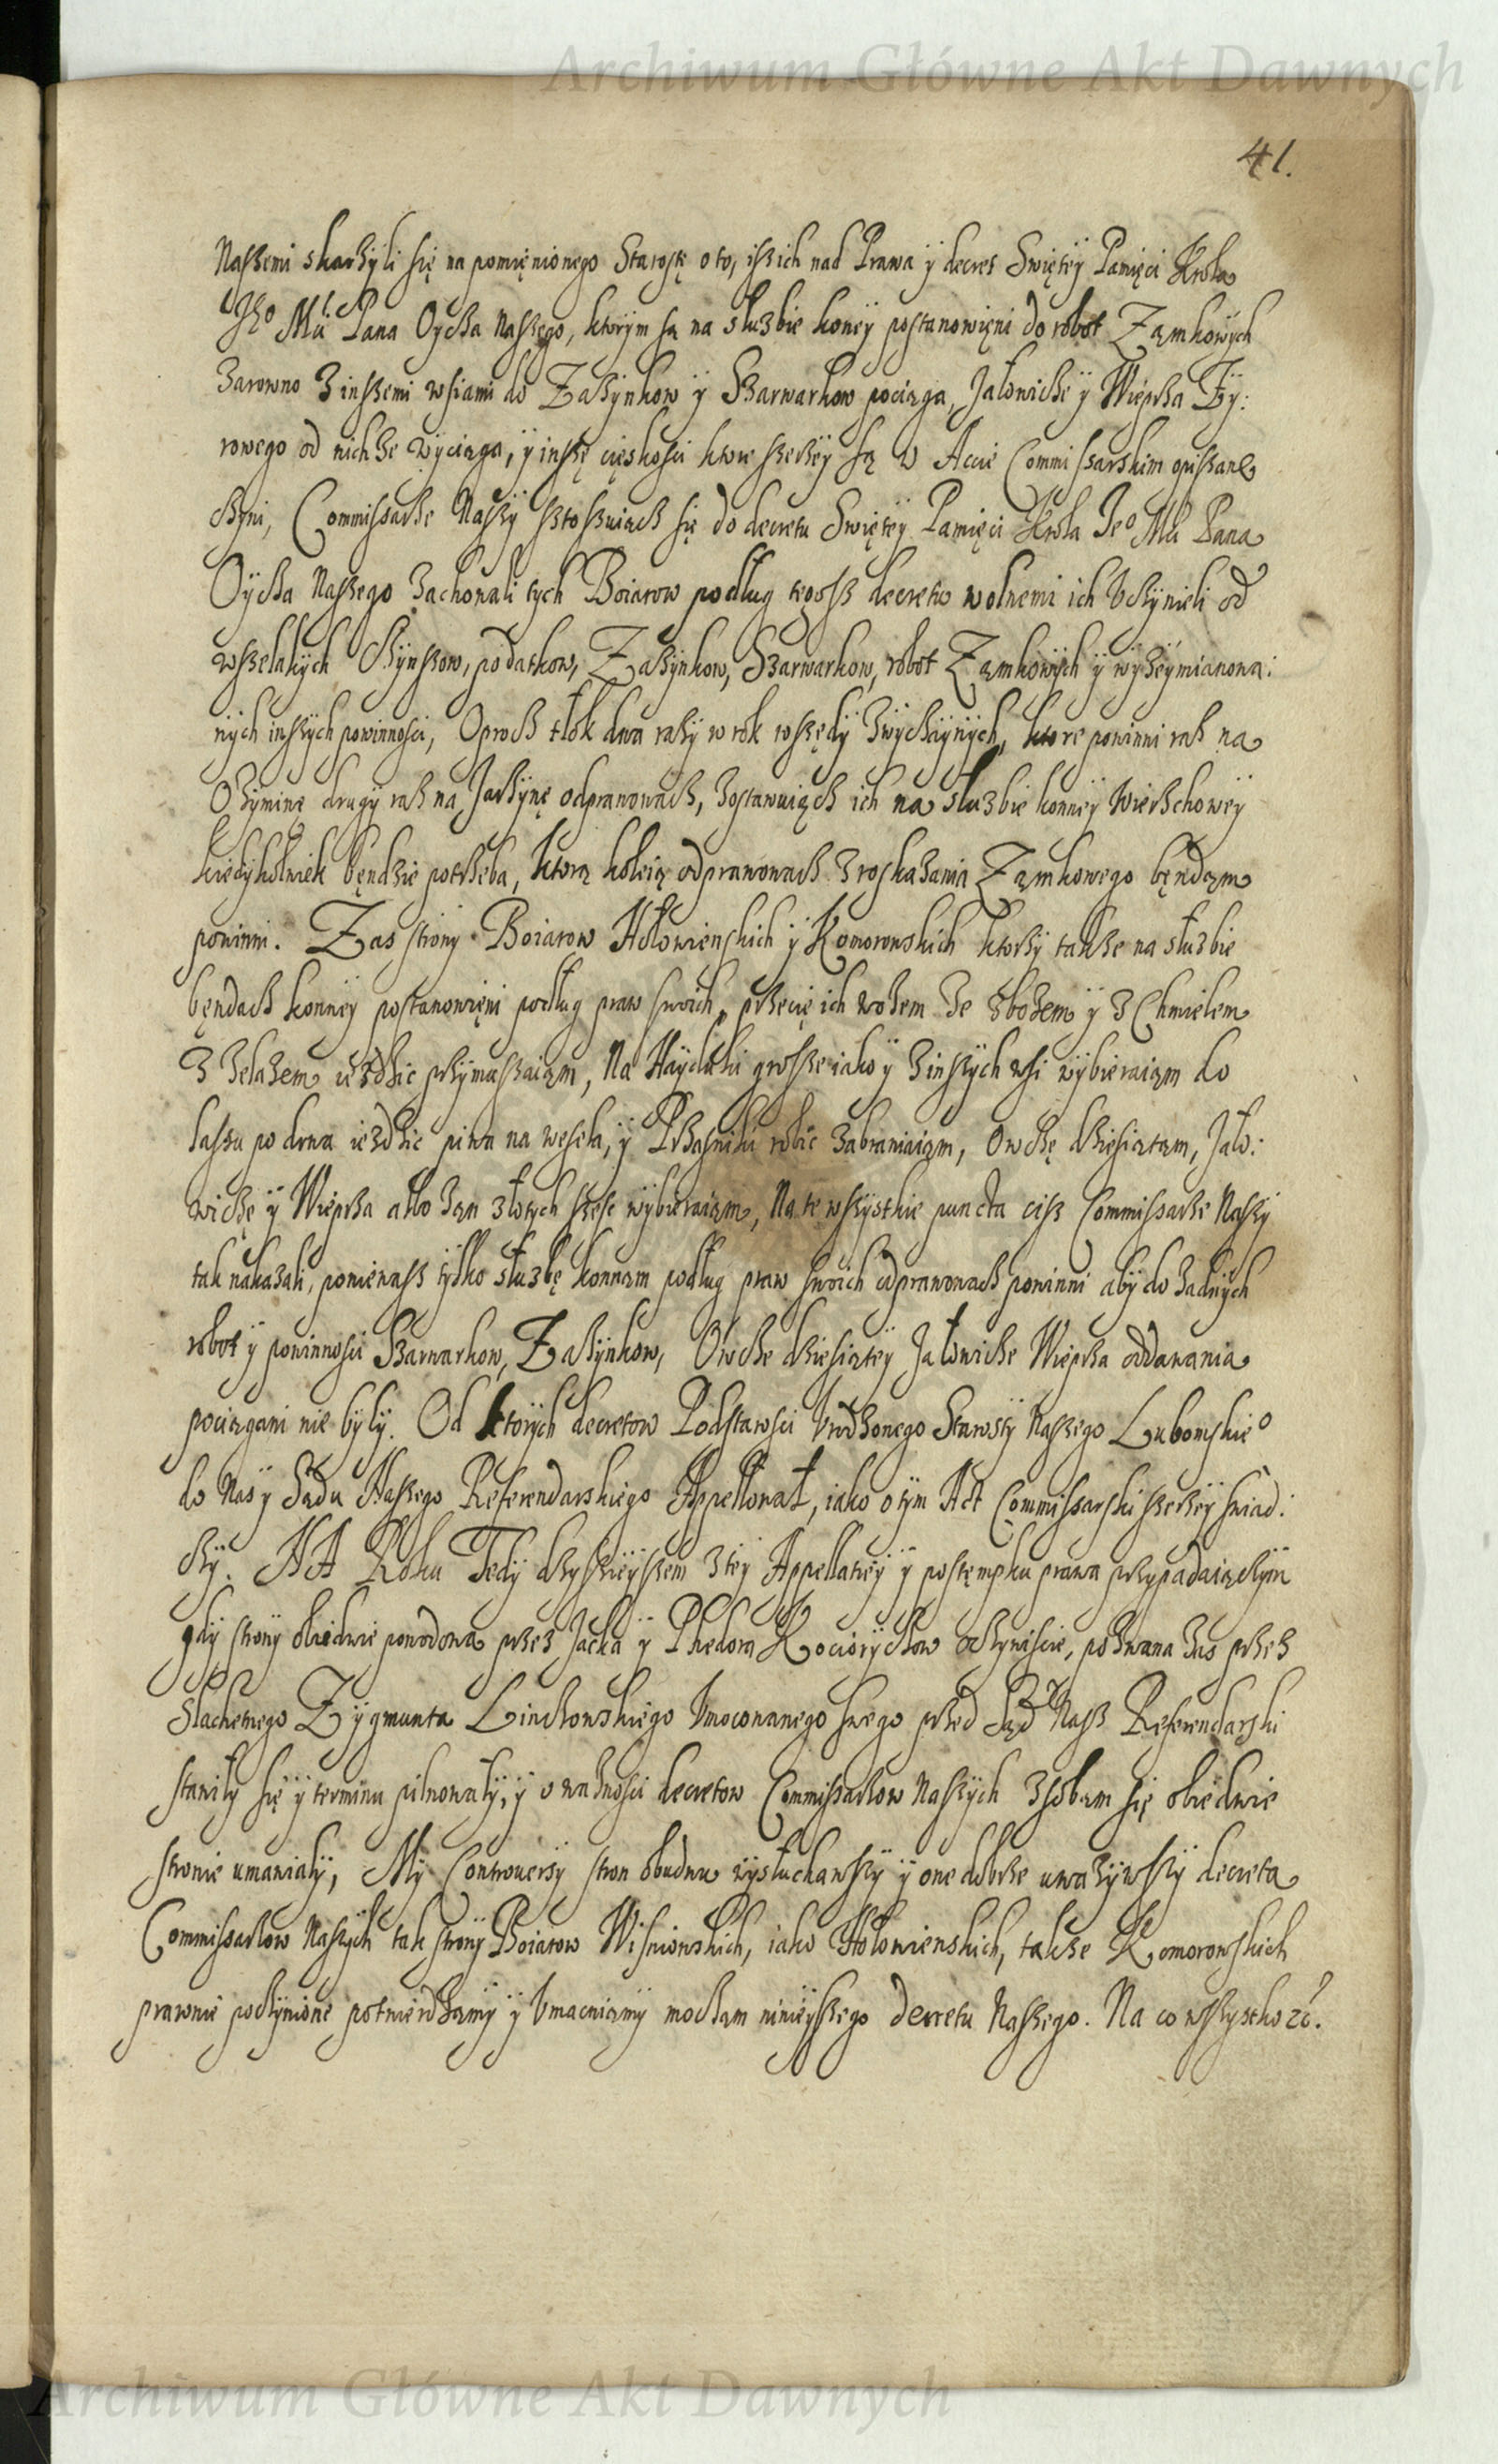 Archiwum Główne Akt Dawnych
41.
Naszemi skarżyli się na pomięnionego Starostę o to, iż ich nad Prawa ÿ decret Swiętey Pamięci Krola
Je° Mći Pana Oycza naszego, ktorÿm są na służbie koney postanowięni do robot Zamkowych
zarowno z inszemi wsiami do Zaczynkow ÿ Szarwarkow pociąga, Jałowicze ÿ Wieprza Zÿ:
rowego od nichze wyciąga, ÿ inszę cięskości ktore szerzeÿ są w Accie Commissarskim opissane
czÿni, Commissarze Naszÿ stosuiącz się do decretu Swiętey Pamięci Krola Je° Mći Pana
Oÿcza naszego zachowali tych Boiarow podług tegosz decretu wolnemi ich uczynieli od
wszelakych Czynszow, podatkow, Zaczynkow, Szarwarkow, robot Zamkowych ÿ wyżeÿmianowa:
nÿch inszych powinności, Oprocz tłok dwa razÿ w rok wszędÿ zwyczaÿnÿch, ktore powinni raz na
Oziminę drugÿ raz na Jarzynę odprawowacz, zostawuiącz ich na służbie konneÿ Wierzchoweÿ
kiedykolwiek będzie potrzeba, ktorą koleią odprawowacz z roskazania Zamkowego będąm
powinni. Zas strony Boiarow Hołowienskich ÿ Komorowskich ktorzÿ także na służbie
będącz konneÿ postanowięni podług praw swoich, przecię ich wozem ze zbożem ÿ z Chmielem
z żelazem ieździc przymuszaiąm, Na Haÿduki grosze iako ÿ z inszych wsi wybieraiąm do
lassu po drwa ieździc piwa na wesela, ÿ Przasniki robic zabraniaiąm, Owczę dziesiątam, Jało:
wiczę ÿ Wieprza albo zan złotych szesc wybieraiąm, Na te wszystkie puncta cisz Commissarze Naszÿ
tak nakazali, ponieważ tylko służbę konnąm podług praw swoich odprawowacz powinni aby do żadnych
robot ÿ powinności Szarwarkow, Zaczynkow, Owcze dziesiąteÿ Jałowicze Wieprza oddawania
pociągani nie byli. Od ktorych decretow Podstarosci Urodzonego Starosty Naszego Lubomskie°
do Nas ÿ Sądu Naszego Referendarskiego Appellował, iako o tym Act Commissarski szerzeÿ swiad:
czÿ. NA Roku Tedy dzysieÿszem z teÿ Appellatieÿ ÿ postęmpku prawa przypadaiączym
gdy strony obiedwie powodowa przez Jacka ÿ Phedora Kociorycźow oczywiscie, pozwana zas przez
Slachetnego Zygmunta Linczowskiego Umocowanego swego przed Sąd Nasz Referendarski
stawiły się ÿ terminu pilnowały, ÿ o ważności decretow Commissarzow Naszych z sobąm się obiedwie
stronie umawiały, Mÿ Controuersÿ stron obudwu wysłuchawszÿ ÿ one dobrze uważywszÿ decreta
Commissarzow Naszych tak strony Boiarow Wisniowskich, iako Hołowienskich, także Komorowskich
prawnie poczynione potwierdzamÿ ÿ Umacniamÿ moczam ninieÿszego decretu Naszego. Na co wszystko zc.
Archiwum Główne Akt Dawnych